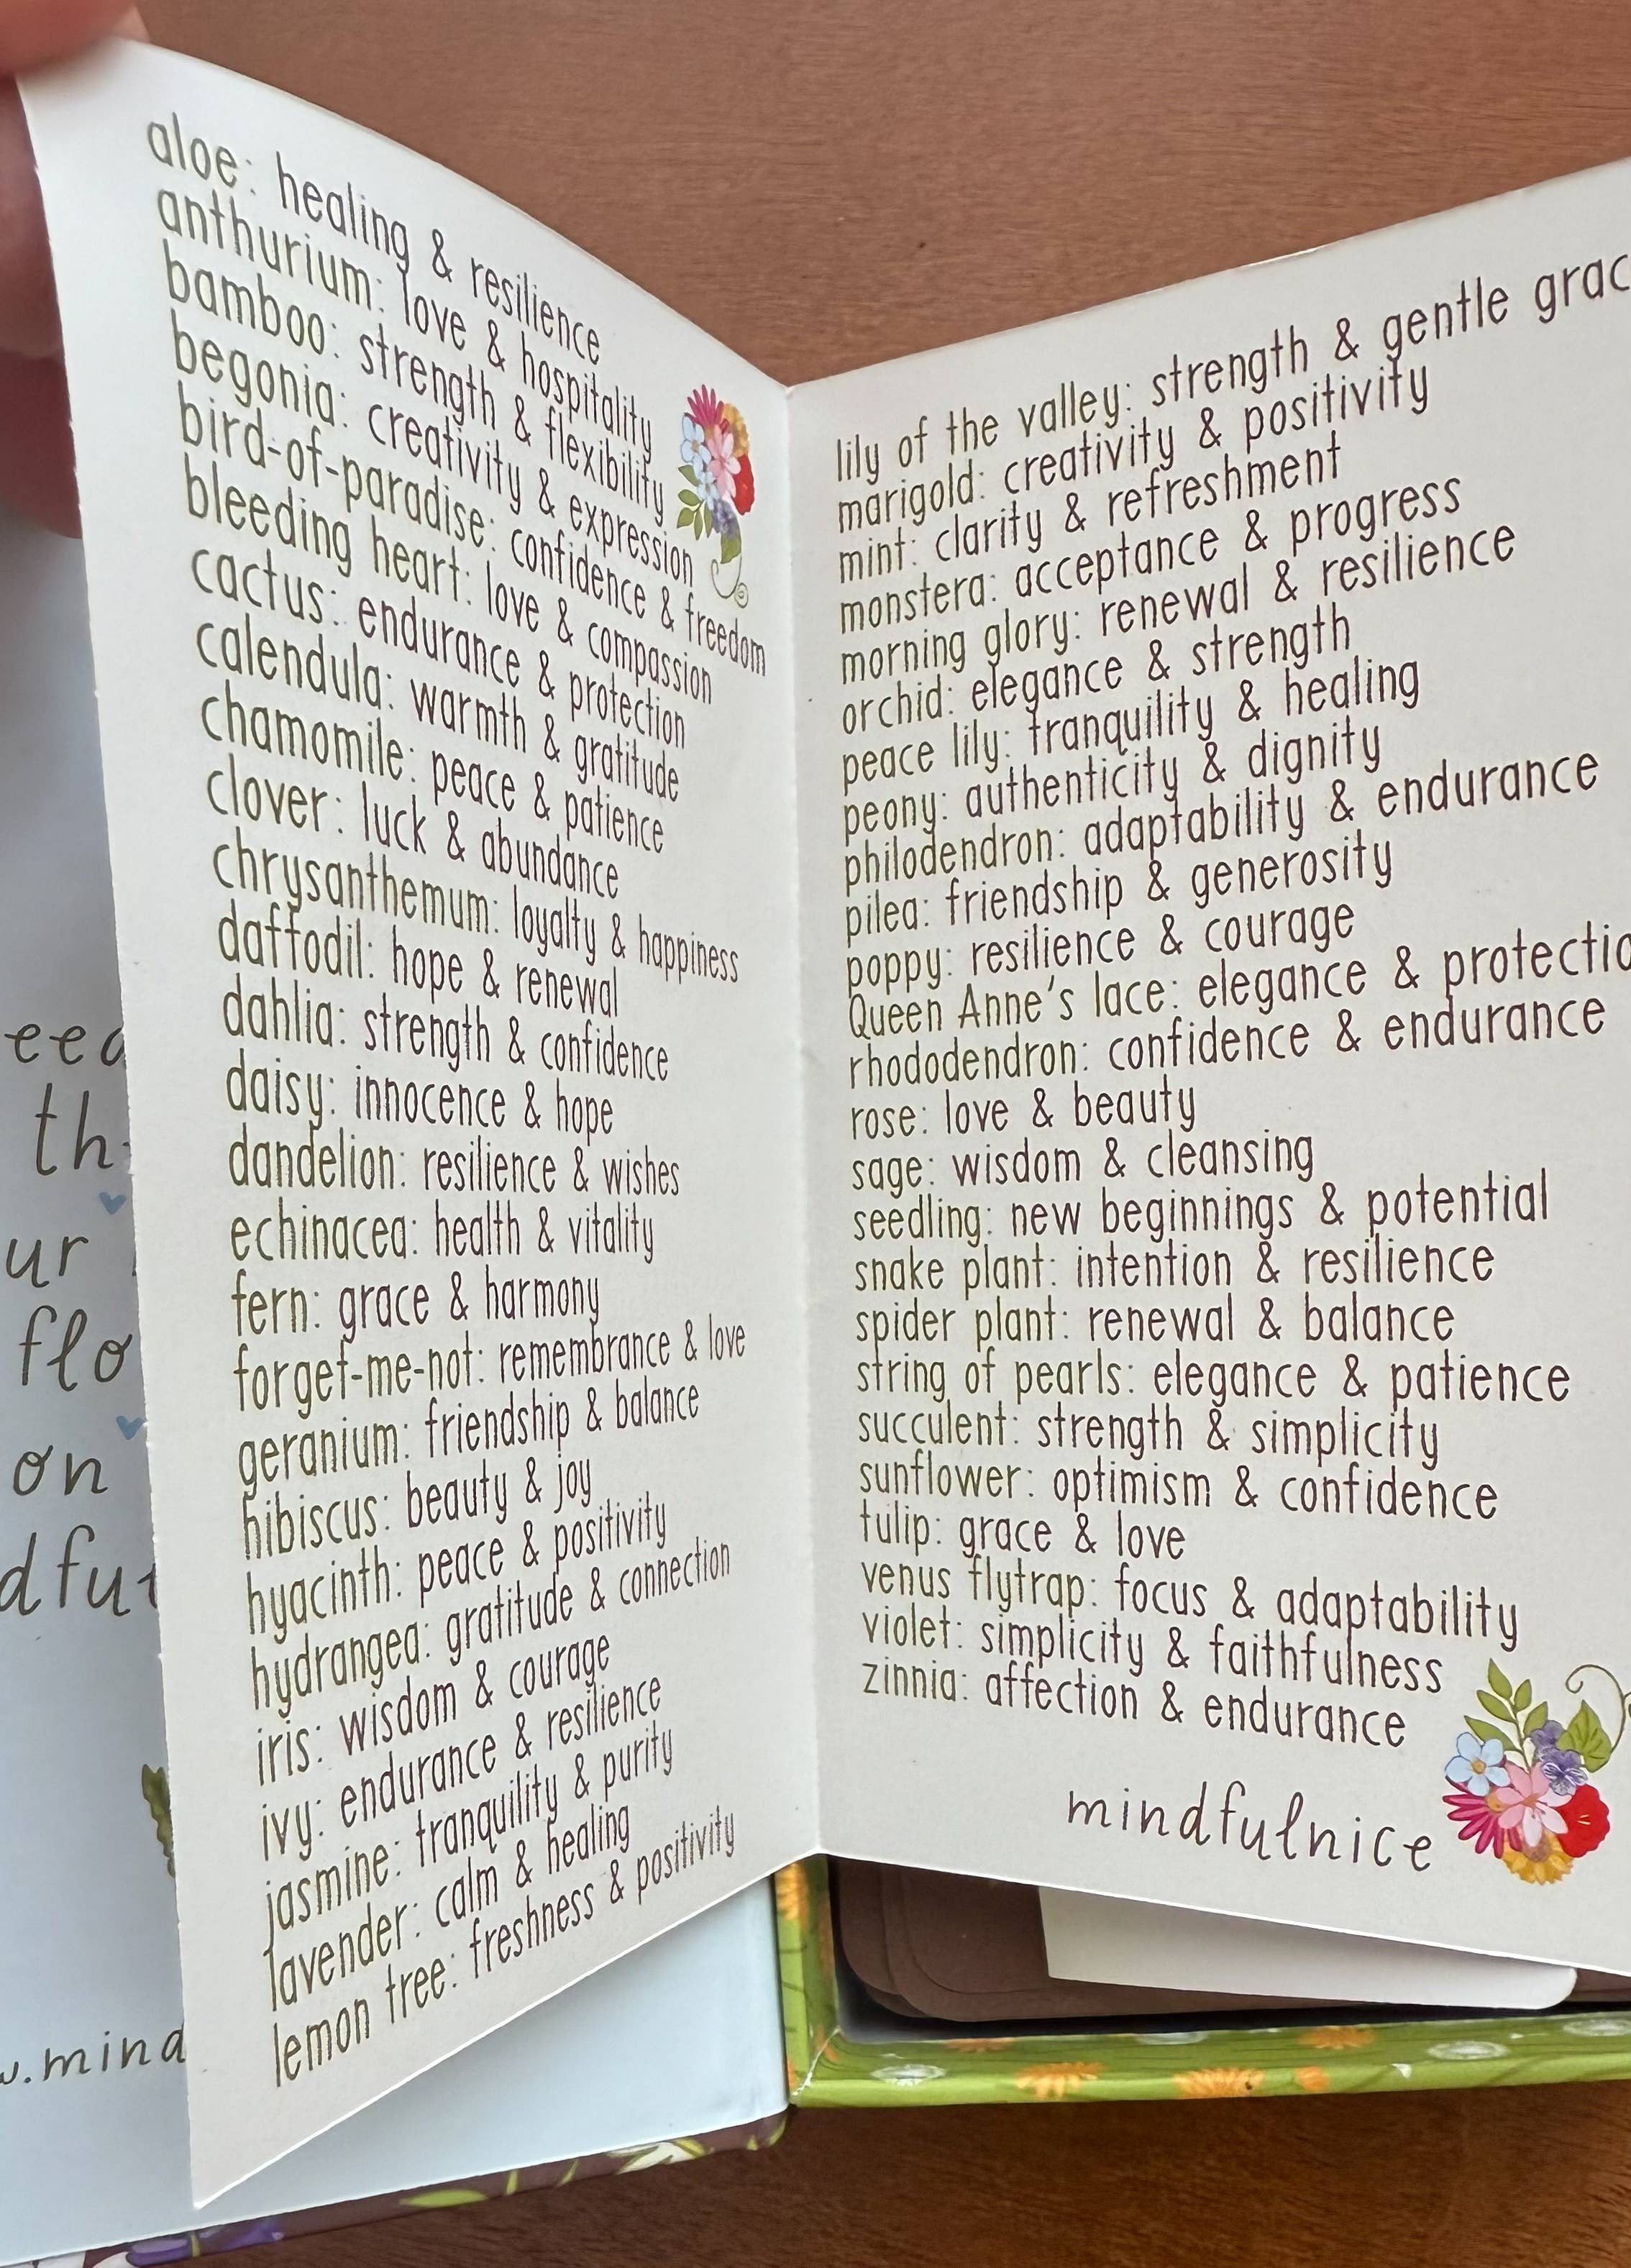 aloe: healing & resilience
anthurium: love & hospitality
bamboo: strength & flexibility
begonia: creativity & expression
bird-of-paradise: confidence & freedom
bleeding heart: love & compassion
cactus: endurance & protection
calendula: warmth & gratitude
chamomile: peace & patience
clover: luck & abundance
chrysanthemum: loyalty & happiness
daffodil: hope & renewal
dahlia: strength & confidence
daisy: innocence & hope
dandelion: resilience & wishes
echinacea: health & vitality
fern: grace & harmony
forget-me-not: remembrance & love
geranium: friendship & balance
hibiscus: beauty & joy
hyacinth: peace & positivity
hydrangea: gratitude & connection
iris: wisdom & courage
ivy: endurance & resilience
jasmine: tranquility & purity
lavender: calm & healing
lemon tree: freshness & positivity
lily of the valley: strength & gentle grac
marigold: creativity & positivity
mint: clarity & refreshment
monstera: acceptance & progress
morning glory: renewal & resilience
orchid: elegance & strength
peace lily: tranquility & healing
peony: authenticity & dignity
philodendron: adaptability & endurance
pilea: friendship & generosity
poppy: resilience & courage
Queen Anne's lace: elegance & protectio
rhododendron: confidence & endurance
rose: love & beauty
sage: wisdom & cleansing
seedling: new beginnings & potential
snake plant: intention & resilience
spider plant: renewal & balance
string of pearls: elegance & patience
succulent: strength & simplicity
sunflower: optimism & confidence
tulip: grace & love
venus flytrap: focus & adaptability
violet: simplicity & faithfulness
zinnia: affection & endurance
mindfulnice
th
ur
flo
on
.mind